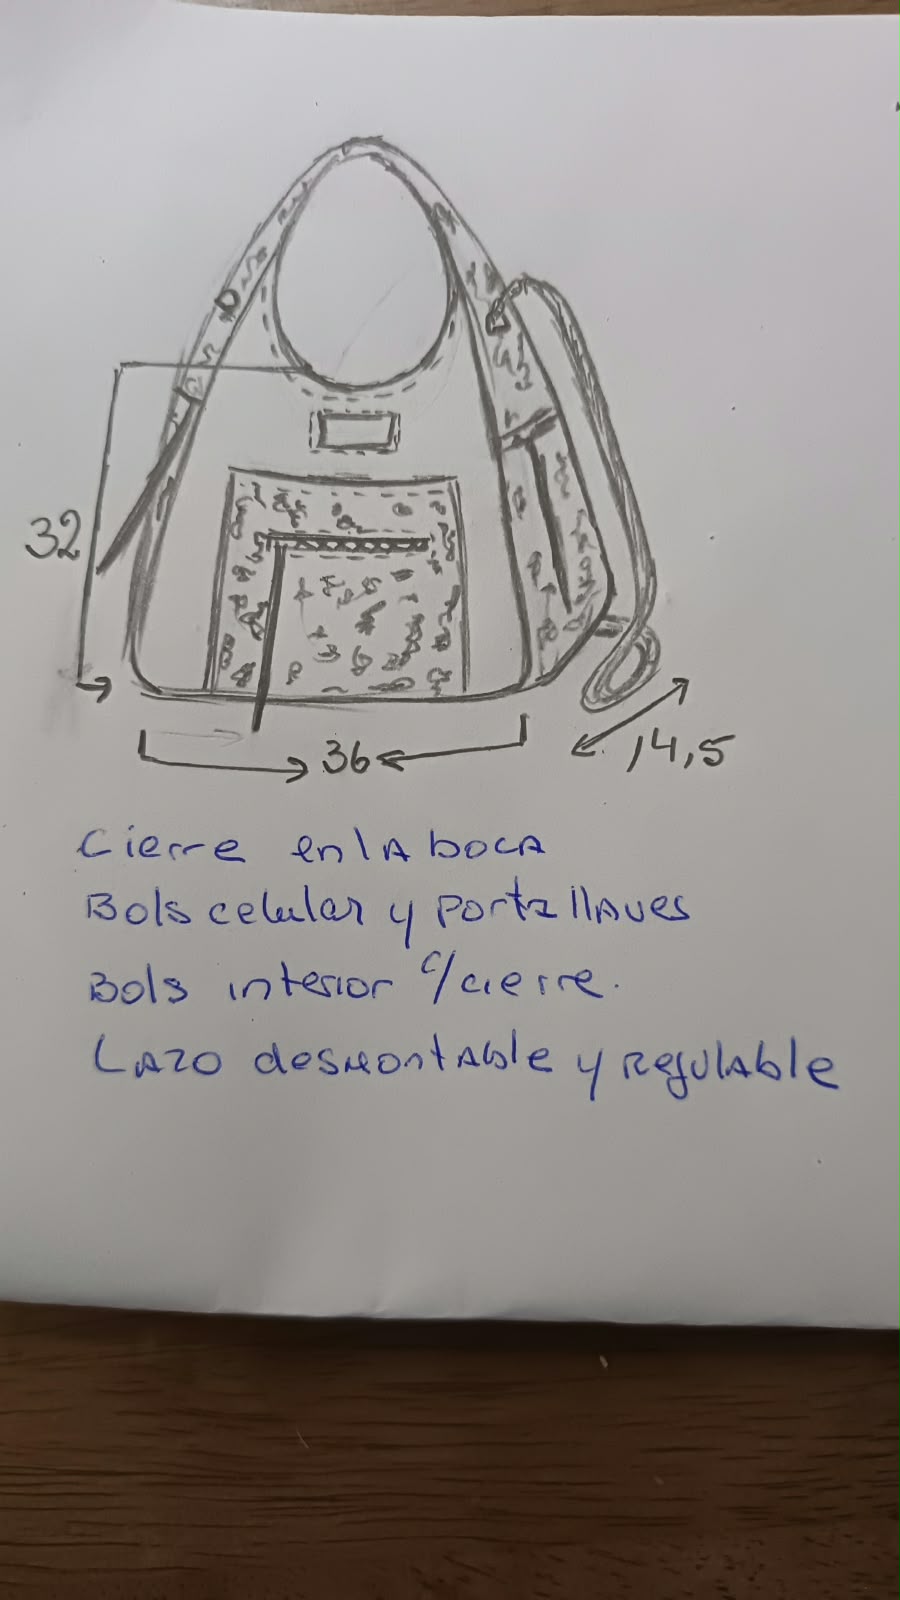 32
36
14,5
Cierre en la boca
Bols celular y portallaves
Bols interior c/cierre.
Lazo desmontable y regulable